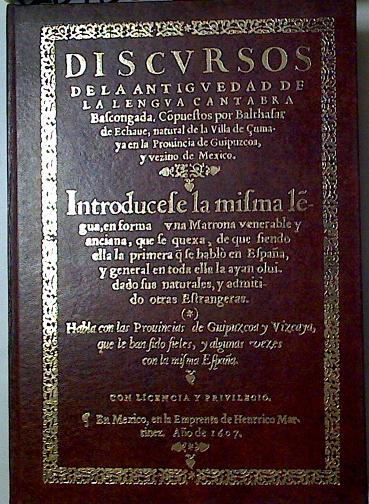 DISCVRSOS
DE LA ANTIGVEDAD DE
LA LENGVA CANTABRA
Bascongada. Cōpuestos por Balthasar
de Echaue, natural de la Villa de Çuma-
ya en la Prouincia de Guipuzcoa,
y vezino de Mexico.
Introducese la misma lē-
gua, en forma vna Matrona venerable y
anciana, que se quexa, de que siendo
ella la primera q̄ se hablò en España,
y general en toda ella la ayan olui-
dado sus naturales, y admiti-
do otras Estrangeras.
(*)
Habla con las Prouincias de Guipuzcoa y Vizcaya,
que le han sido fieles, y algunas vezes
con la misma España.
CON LICENCIA Y PRIVILEGIO.
¶ En Mexico, en la Emprenta de Henrrico Mar-
tinez. Año de 1607.